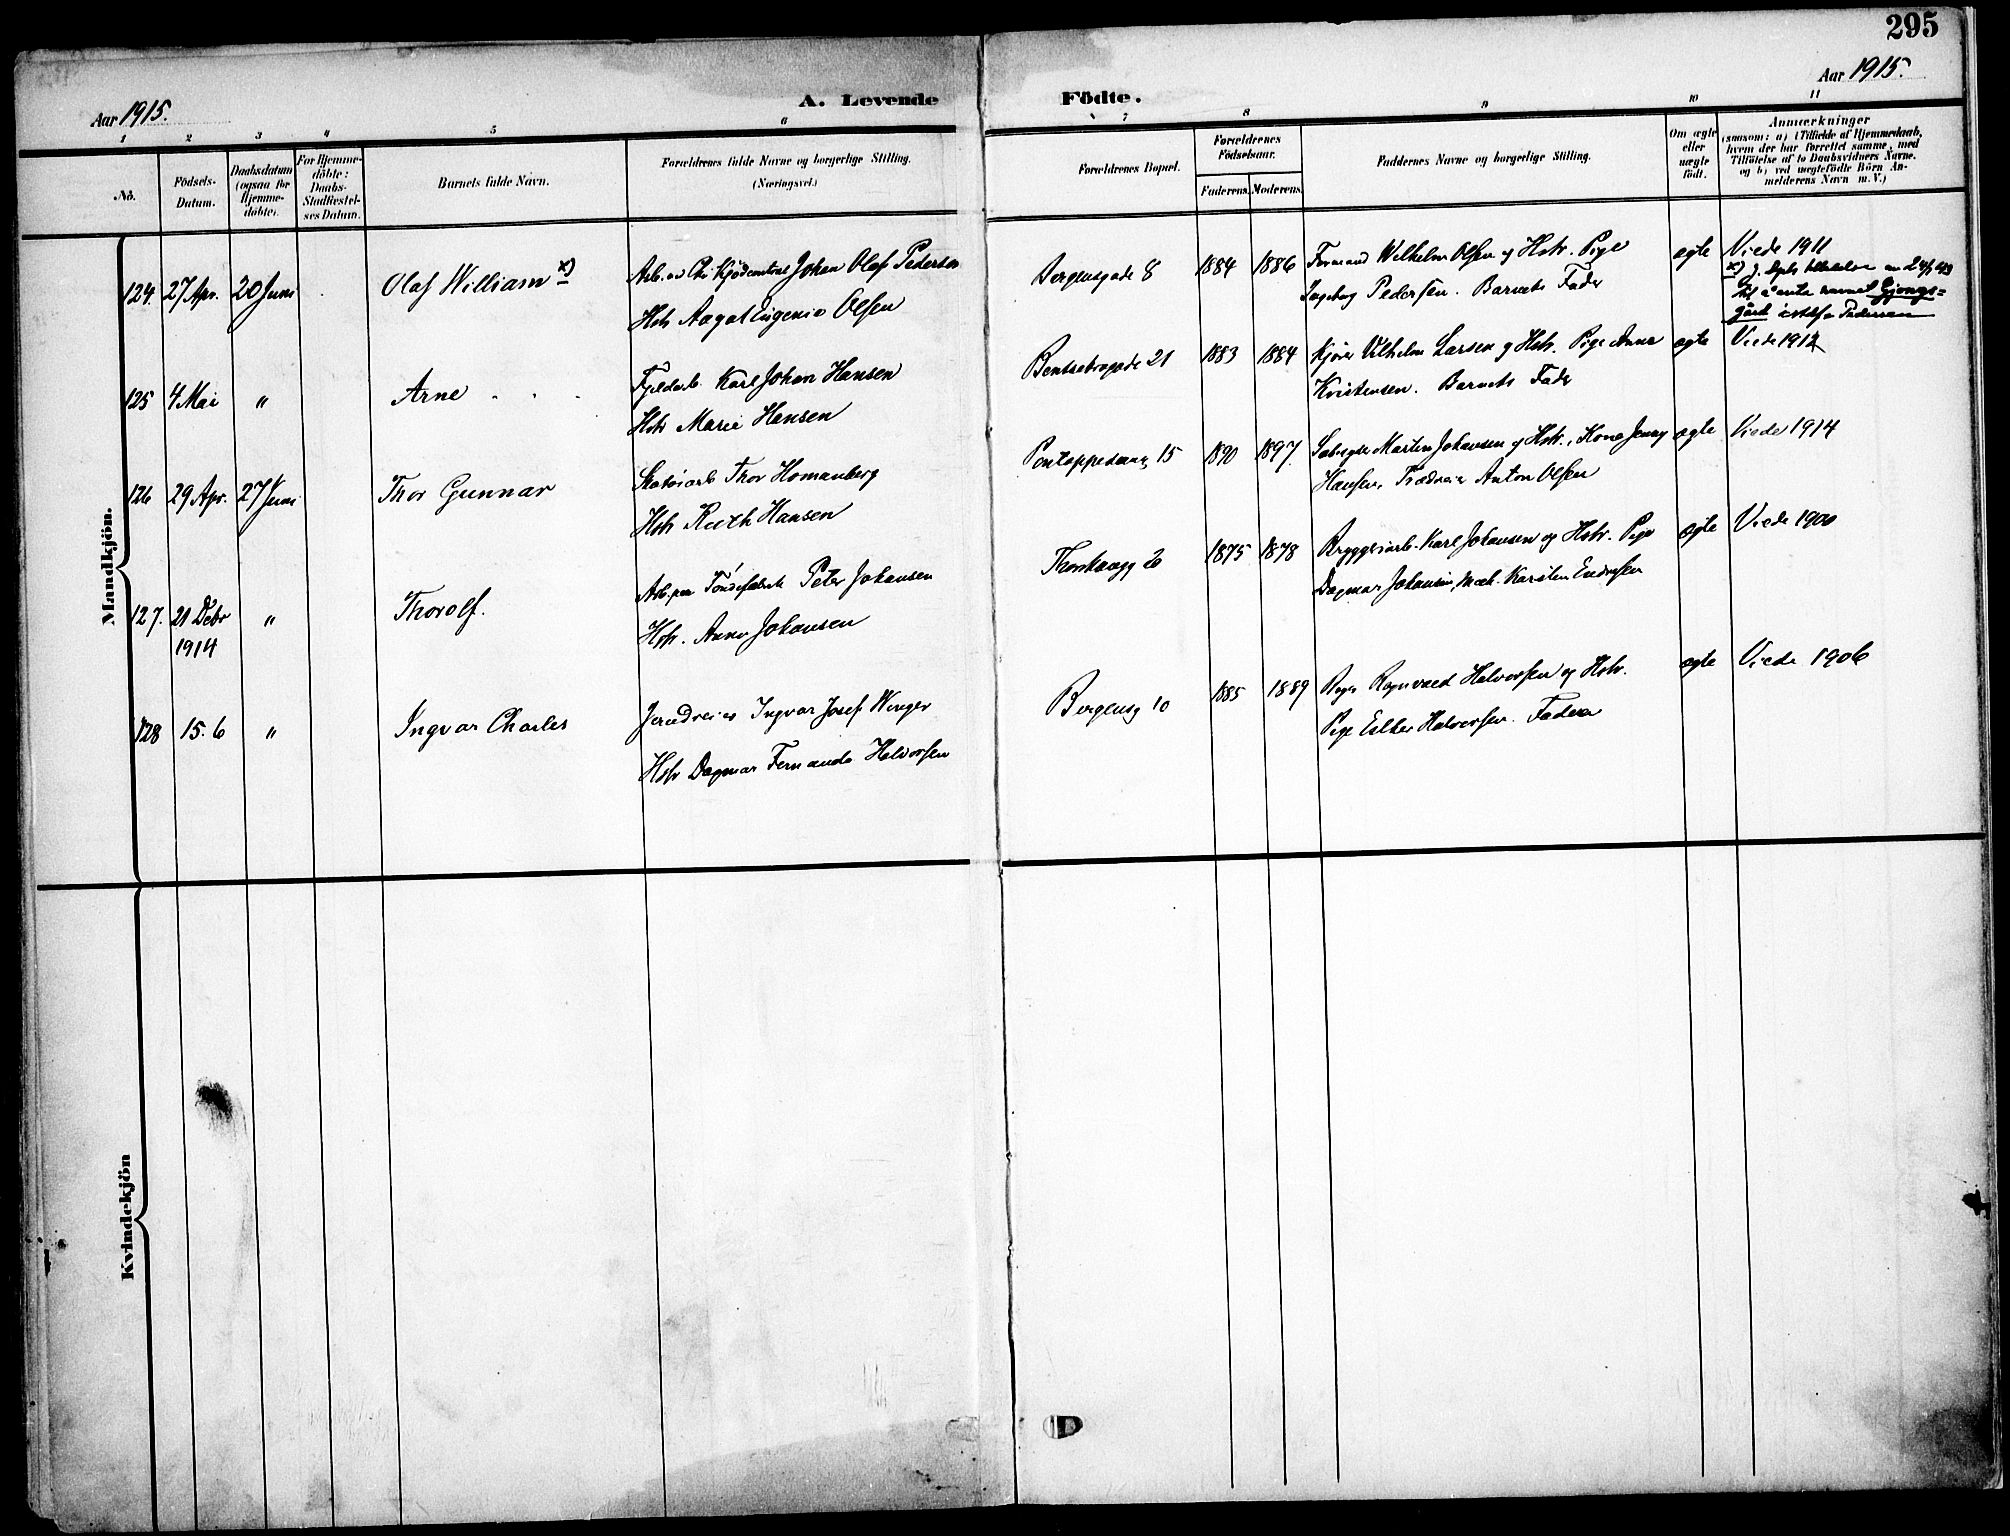 295
Aar 1915.
Aar 1915.
A. Levende Födte.
1 2 3 4 5 6 7 8 9 10 11
No.
Födsels-
Datum.
Daabsdatum
(ogsaa for
Hjemme-
döbte).
For Hjemme-
döbte:
Daabs-
Stadfæstel-
ses Datum.
Barnets fulde Navn.
Forældrenes fulde Navne og borgerlige Stilling.
(Næringsvei.)
Forældrenes Bopæl.
Forældrenes
Födselsaar.
Faderens. Moderens.
Faddernes Navne og borgerlige Stilling.
Om ægte
eller
uægte
födt.
Anmærkninger
(saasom: a) i Tilfælde af Hjemmedaab,
hvem der har forrettet samme, med
Tilföielse af to Daabsvidners Navne,
og b) ved uægtefödte Börn An-
melderens Navn m. V.)
Mandkjön.
124. 27 Apr. 20 Juni Olaf William x)
Johan Olaf Pedersen
Hstr Olsen
Bergensgade 8 1884 1886
Formand Wilhelm Olsen og Hstr. Pige
Ingeborg Pedersen. Barnets Fader
ægte Viede 1911
x)
navnet Gjongs=
gård istedf. Pedersen
125 4 Mai " Arne
Karl Johan Hansen
Hstr Marie Hansen
Bentsebrogade 21 1883 1884
Kjører Vilhelm Larsen og Hstr. Pige Anna
Kristensen. Barnets Fader
ægte Viede 1912
126 29 Apr. 27 Juni Thor Gunnar
Skotøiarb Thor Homanberg
Hstr Ruth Hansen
15 1890 1897.
Martin Johansen og Hstr. Kona Jenny
Hansen, Anton Olsen
ægte Viede 1914
127. 21 Debr
1914
" Thorolf.
Arb. paa Tøndefabrik Peter Johansen
Hstr. Anna Johansen
1875 1878
Bryggeriarb. Karl Johansen og Hstr. Pige
Dagmar Johansen, Karsten
ægte Viede 1900
128 15.6 " Ingvar Charles
Ingvar Josef Winger
Hstr Dagmar Fernanda Halvorsen
Bergensg 10 1885 1889
Ragnvald Halvorsen og Hstr.
Pige Esther Halvorsen. Faderen
ægte Viede 1906
Kvindekjön